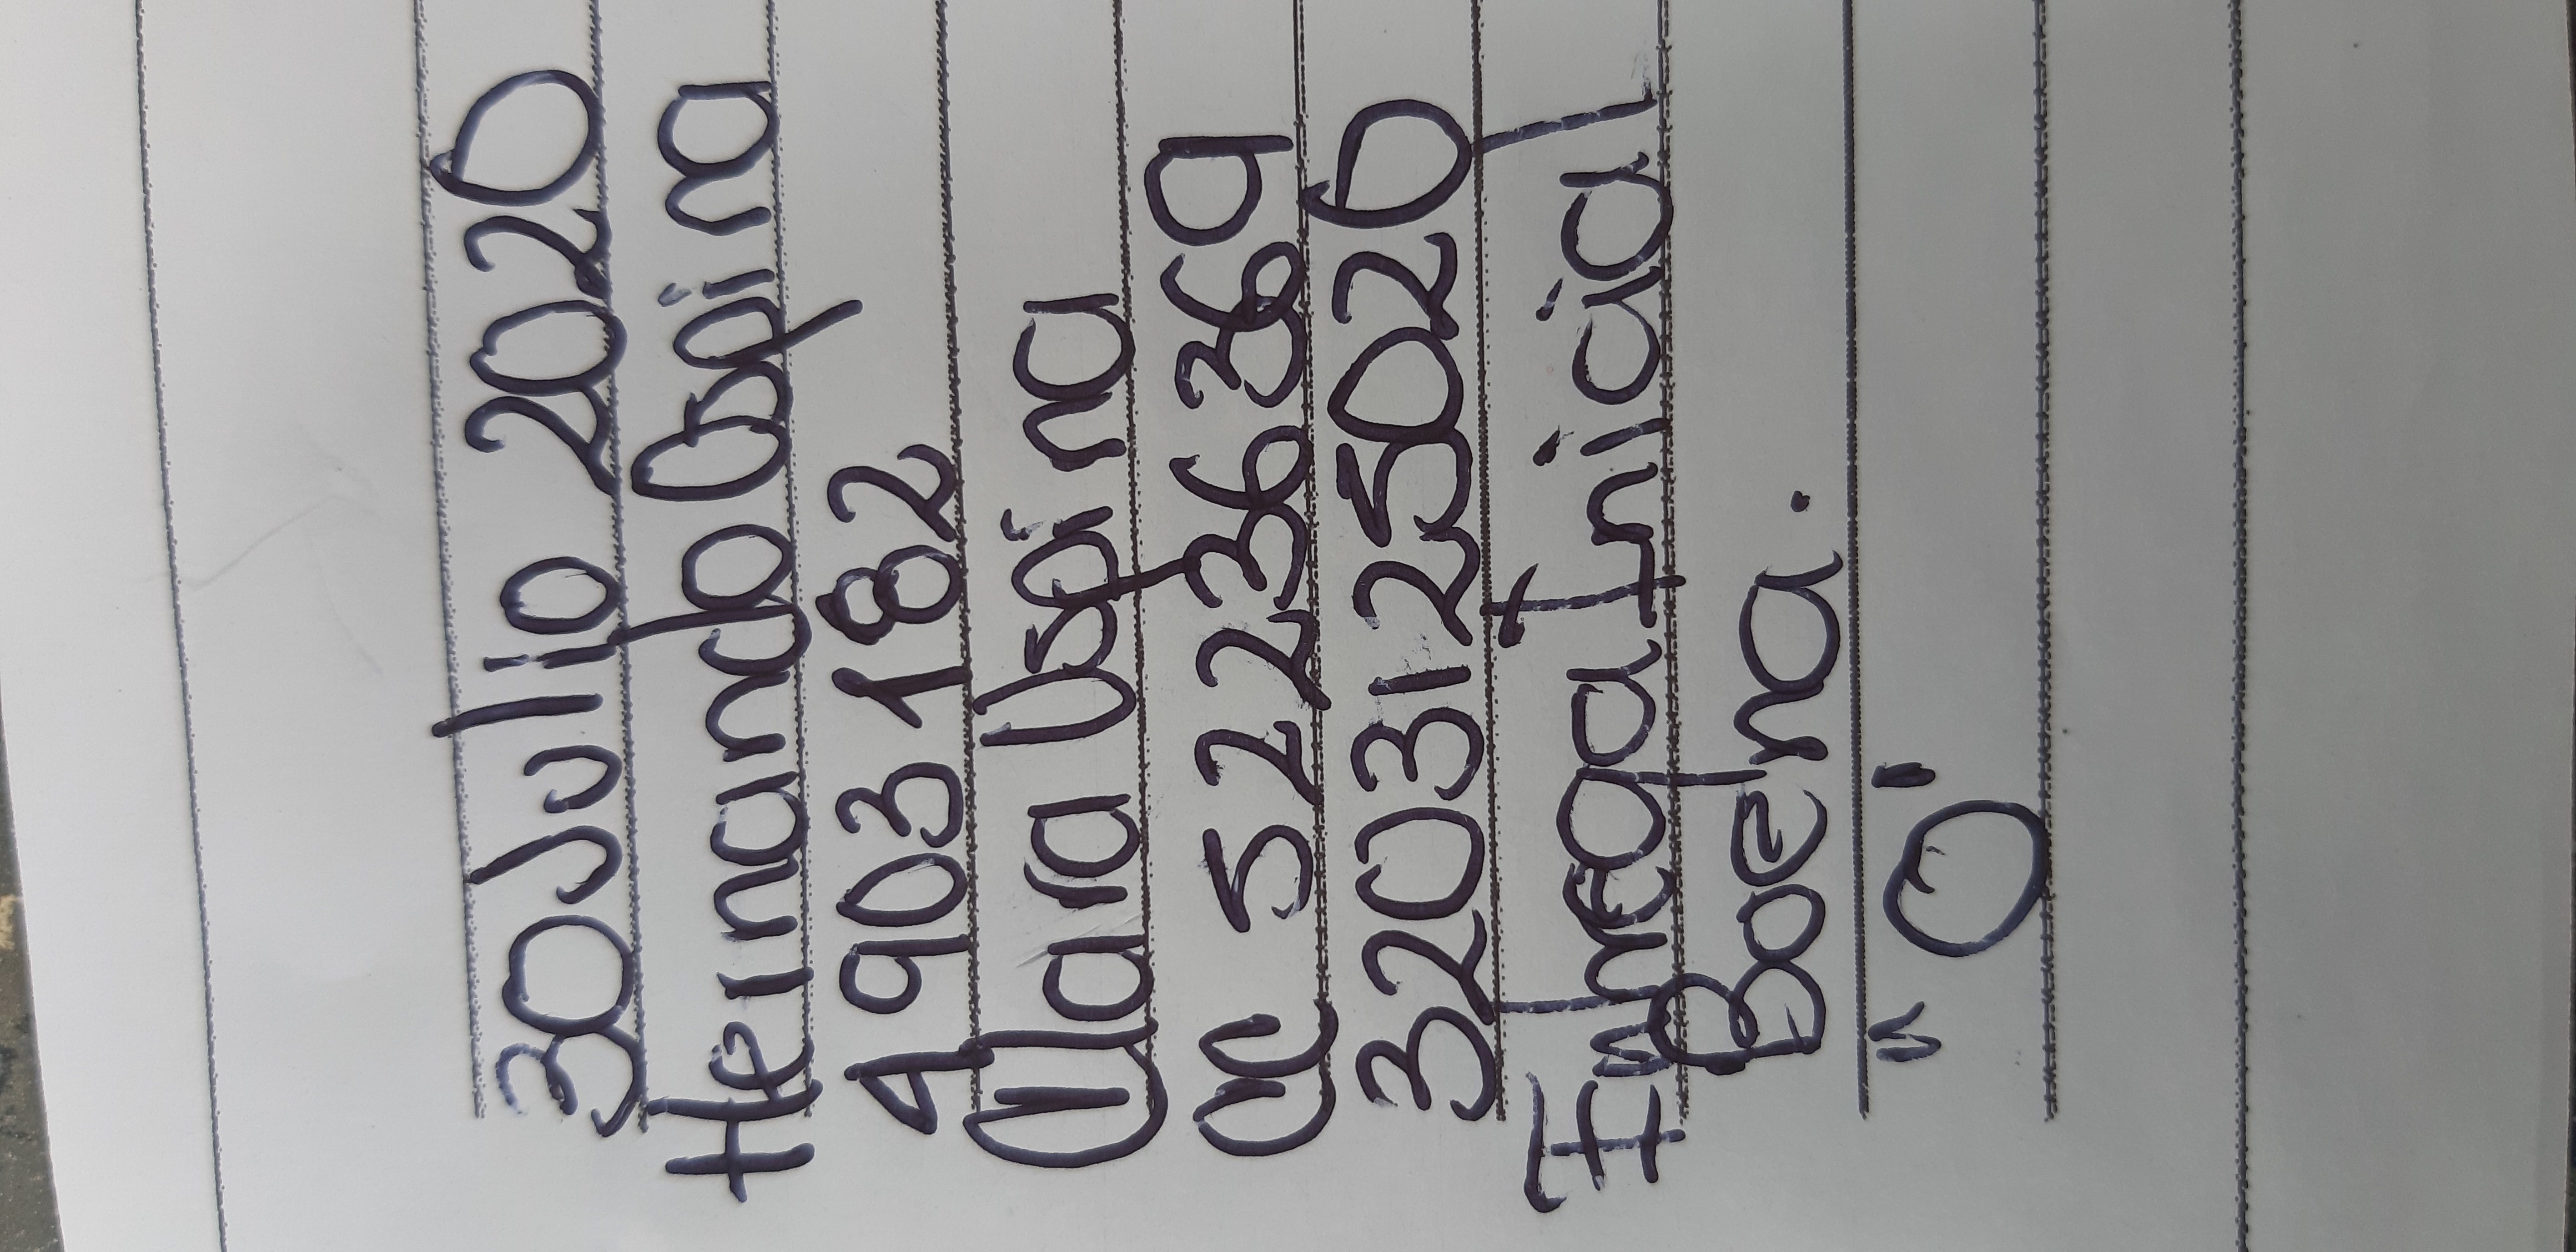 30 Julio 2020
Hernando Ospina
4903182
Clara Ospina
CC 52236369
3203125020
Entrega Inicial
Buena.
"0"